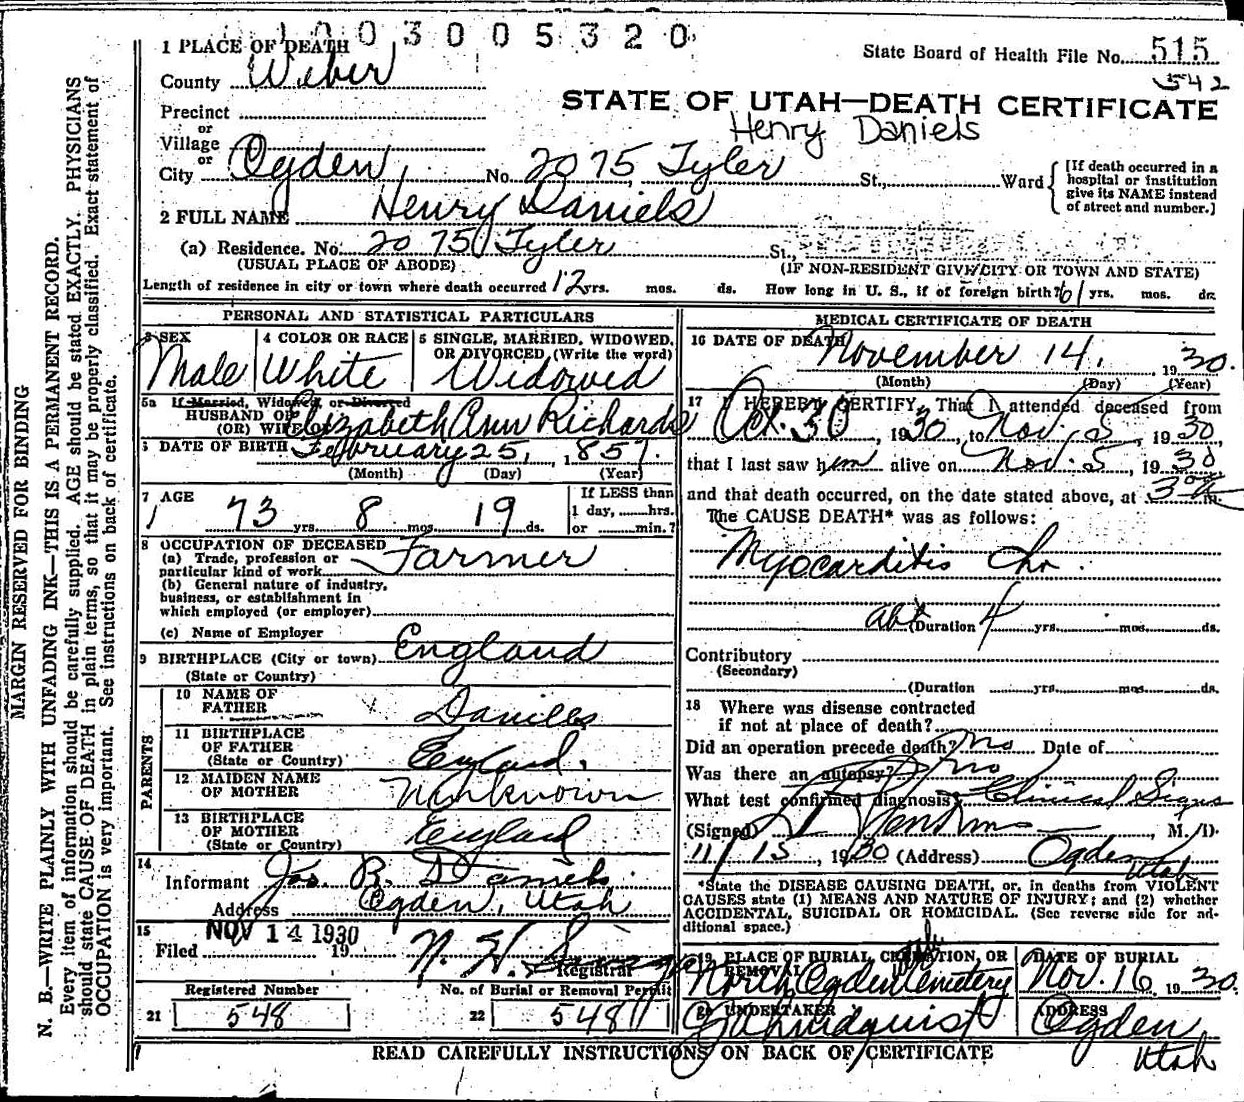 1003005320
1 PLACE OF DEATH
State Board of Health File No. 515
County Weber
542
STATE OF UTAH—DEATH CERTIFICATE
Precinct
Henry Daniels
or
Village
or
City Ogden, No. 2075 Tyler St., Ward
[If death occurred in a hospital or institution give its NAME instead of street and number.]
2 FULL NAME Henry Daniels
(a) Residence. No. 2075 Tyler St.,
(USUAL PLACE OF ABODE)
(IF NON-RESIDENT GIVE CITY OR TOWN AND STATE)
Length of residence in city or town where death occurred 12 yrs. mos. ds. How long in U. S., if of foreign birth? 61 yrs. mos. ds.
PERSONAL AND STATISTICAL PARTICULARS
3 SEX
Male
4 COLOR OR RACE
White
5 SINGLE, MARRIED, WIDOWED,
OR DIVORCED (Write the word)
Widowed
5a If Married, Widowed, or Divorced
HUSBAND OF
(OR) WIFE OF Elizabeth Ann Richards
6 DATE OF BIRTH February 25, 1857.
(Month) (Day) (Year)
7 AGE
73 yrs. 8 mos. 19 ds.
If LESS than
1 day, hrs.
or min.?
8 OCCUPATION OF DECEASED
(a) Trade, profession or
particular kind of work Farmer
(b) General nature of industry,
business, or establishment in
which employed (or employer)
(c) Name of Employer
9 BIRTHPLACE (City or town) England
(State or Country)
PARENTS
10 NAME OF
FATHER Daniels
11 BIRTHPLACE
OF FATHER
(State or Country) England.
12 MAIDEN NAME
OF MOTHER Unknown
13 BIRTHPLACE
OF MOTHER
(State or Country) England
14
Informant Jos. R. Daniels
Address Ogden, Utah
15
Filed NOV 14 1930 19 N. H.
Registrar
Registered Number
21 548
No. of Burial or Removal Permit
22 548
MEDICAL CERTIFICATE OF DEATH
16 DATE OF DEATH
November 14, 1930.
(Month) (Day) (Year)
17 I HEREBY CERTIFY, That I attended deceased from
Oct. 30, 1930, to Nov. 5, 1930,
that I last saw him alive on Nov. 5, 1930
and that death occurred, on the date stated above, at 3 m.
The CAUSE DEATH* was as follows:
Myocarditis Chr.
abt (Duration 4 yrs. mos. ds.
Contributory
(Secondary)
(Duration yrs. mos. ds.
18 Where was disease contracted
if not at place of death?
Did an operation precede death? No Date of
Was there an autopsy? no
What test confirmed diagnosis? Clinical Signs
(Signed) M. D.
11/15, 1930 (Address) Ogden
Utah
*State the DISEASE CAUSING DEATH, or, in deaths from VIOLENT
CAUSES state (1) MEANS AND NATURE OF INJURY; and (2) whether
ACCIDENTAL, SUICIDAL OR HOMICIDAL. (See reverse side for additional space.)
19 PLACE OF BURIAL CREMATION, OR
REMOVAL
North Ogden Cemetery
DATE OF BURIAL
Nov. 16, 1930.
20 UNDERTAKER
Lindquist
ADDRESS
Ogden
Utah
READ CAREFULLY INSTRUCTIONS ON BACK OF CERTIFICATE
MARGIN RESERVED FOR BINDING
N. B.—WRITE PLAINLY WITH UNFADING INK—THIS IS A PERMANENT RECORD.
Every item of information should be carefully supplied. AGE should be stated EXACTLY. PHYSICIANS
should state CAUSE OF DEATH in plain terms, so that it may be properly classified. Exact statement of
OCCUPATION is very important. See instructions on back of certificate.